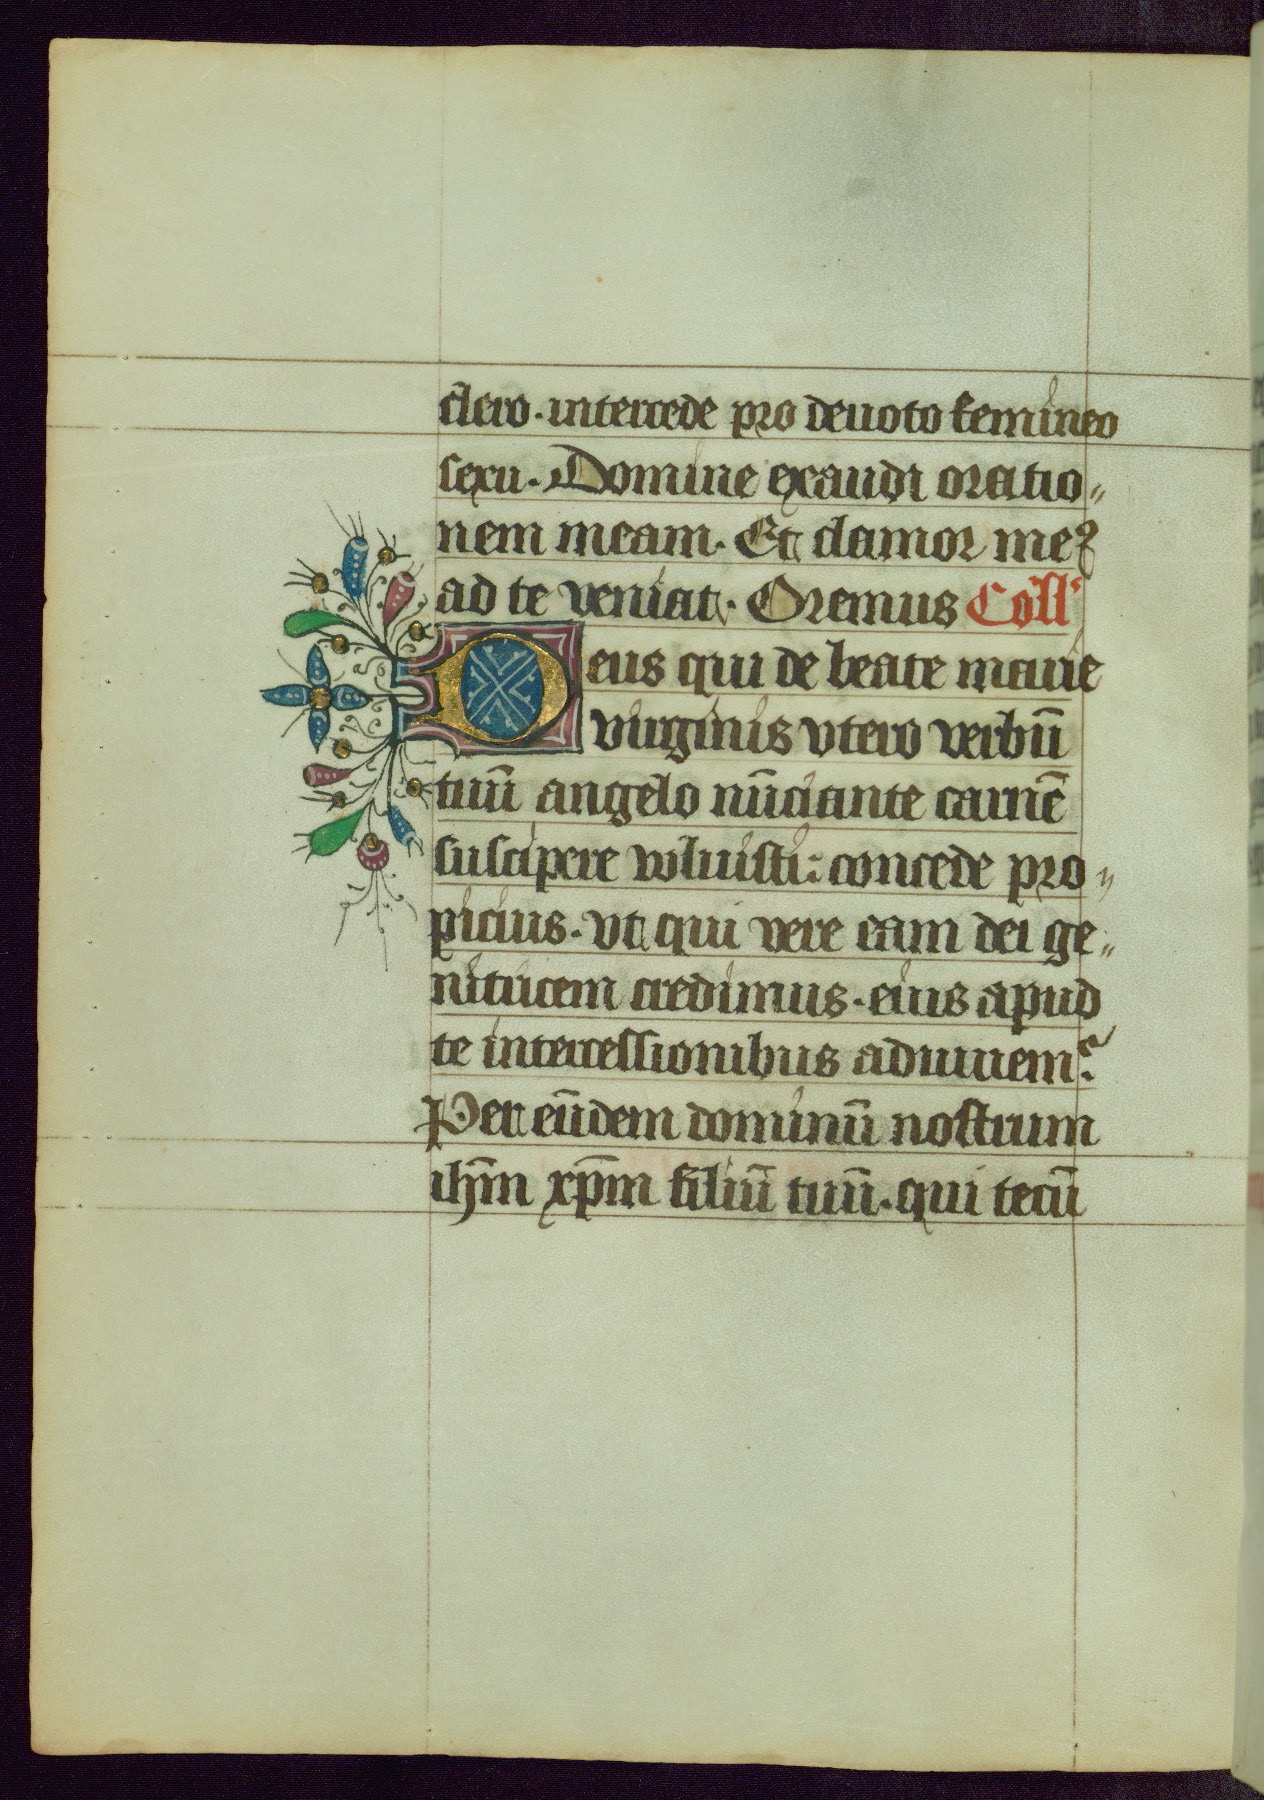 clero. intercede pro deuoto femineo
sexu. Domine exaudi oratio„
nem meam. Et clamor meꝰ
ad te veniat. Oremus Coll'
Deus qui de beate marie
virginis vtero verbū
tuū angelo nūciante carnē
suscipere voluisti: concede pro„
picius. vt qui vere eam dei ge„
nitricem credimus. eius apud
te intercessionibus adiuuem᷑.
Per eūdem dominū nostrum
ihm̄ xp̄m filiū tuū. qui tecū